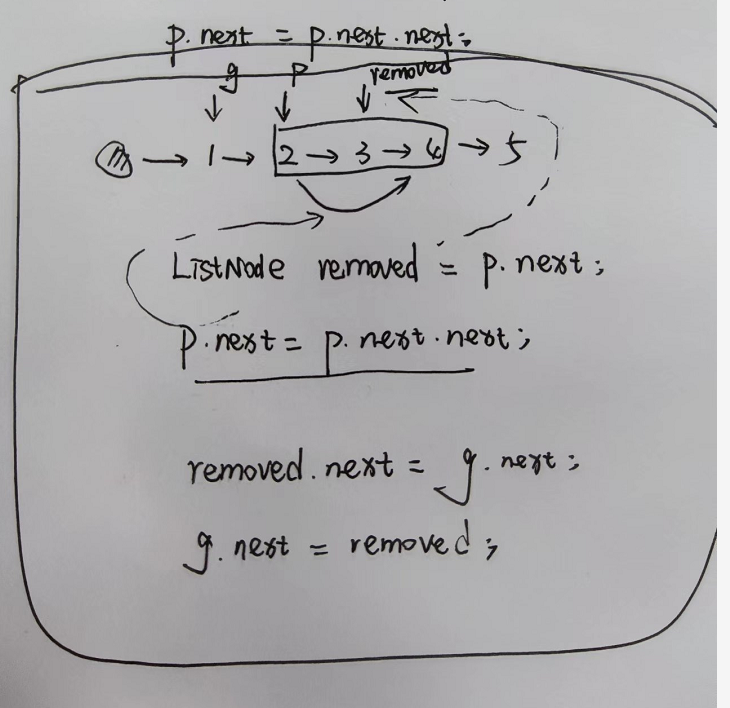 p.next = p.next.next;
g p removed
→ 1 → 2 → 3 → 4 → 5
ListNode removed = p.next;
p.next = p.next.next;
removed.next = g.next;
g.next = removed;